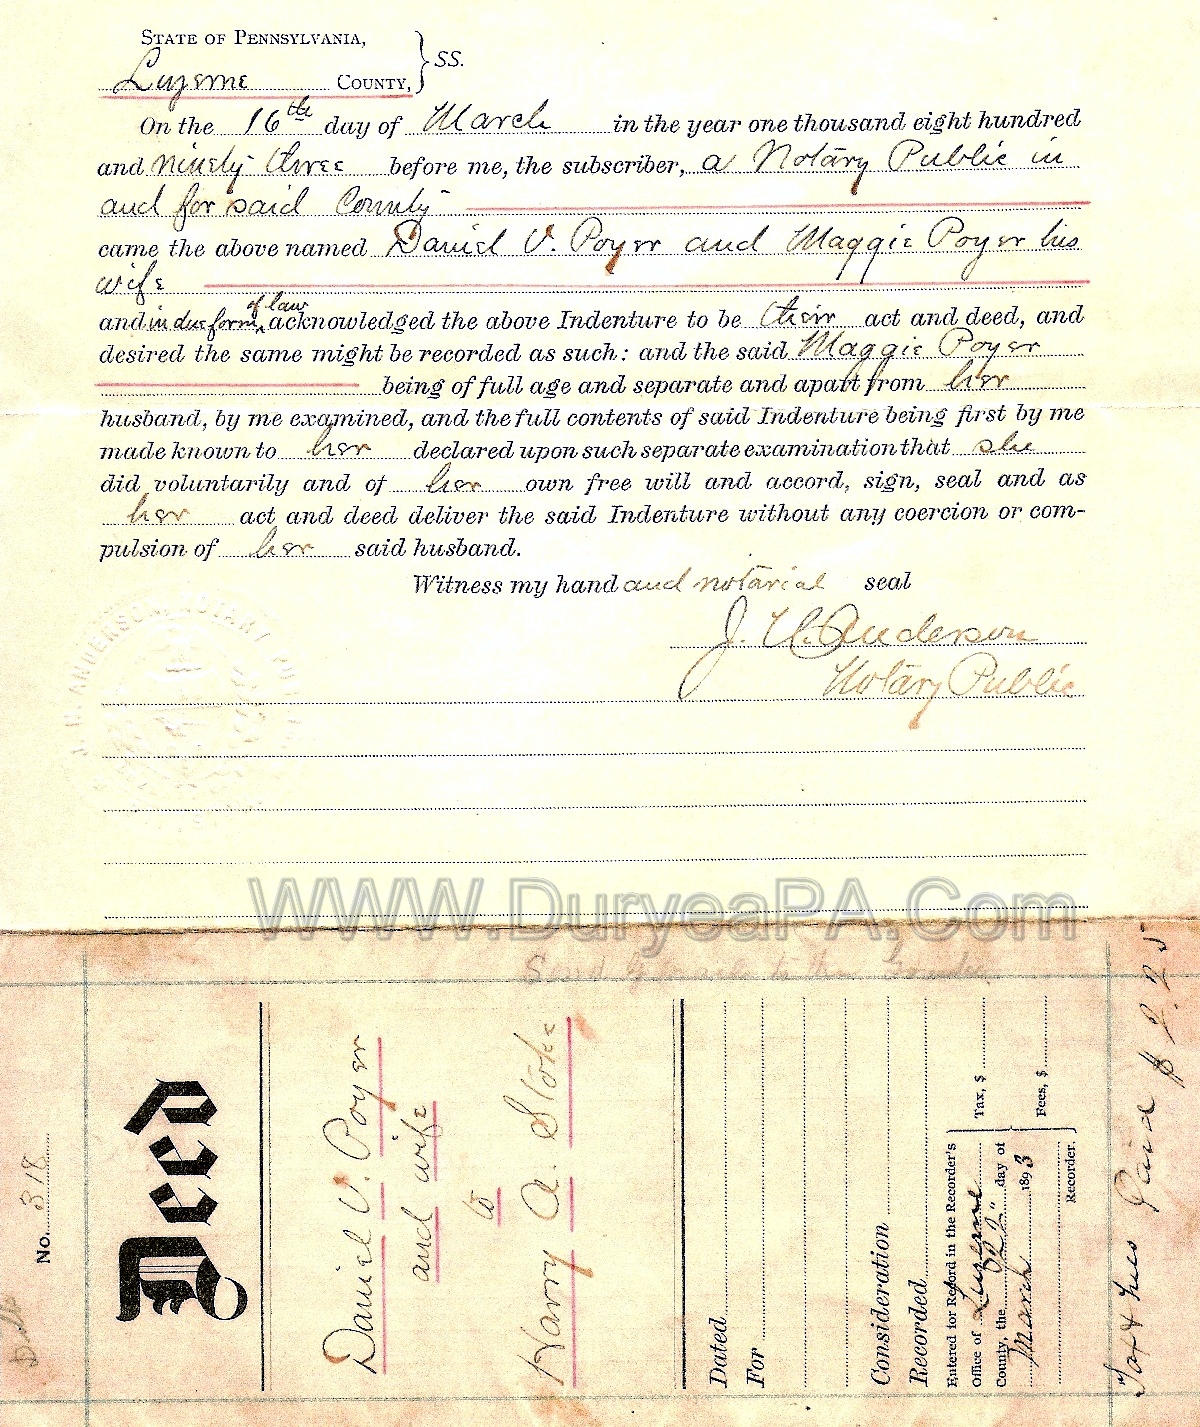 STATE OF PENNSYLVANIA,
Luzerne COUNTY, } SS.
On the 16th day of March in the year one thousand eight hundred
and ninety three before me, the subscriber, a Notary Public in
and for said County
came the above named Daniel V. Poyer and Maggie Poyer his
wife
and in due form of law acknowledged the above Indenture to be their act and deed, and
desired the same might be recorded as such: and the said Maggie Poyer
being of full age and separate and apart from her
husband, by me examined, and the full contents of said Indenture being first by me
made known to her declared upon such separate examination that she
did voluntarily and of her own free will and accord, sign, seal and as
her act and deed deliver the said Indenture without any coercion or com-
pulsion of her said husband.
Witness my hand and notarial seal
J. H. Anderson
Notary Public
WWW.DuryeaPA.Com
No. 318
Deed
Daniel V. Poyer
and wife
to
Harry A. Stoke
Dated
For
Consideration
Recorded
Entered for Record in the Recorder's
Office of Luzerne
County, the 22" day of
March 1893
Tax, $
Fees, $
Recorder.
Tax & fees Paid $2.25